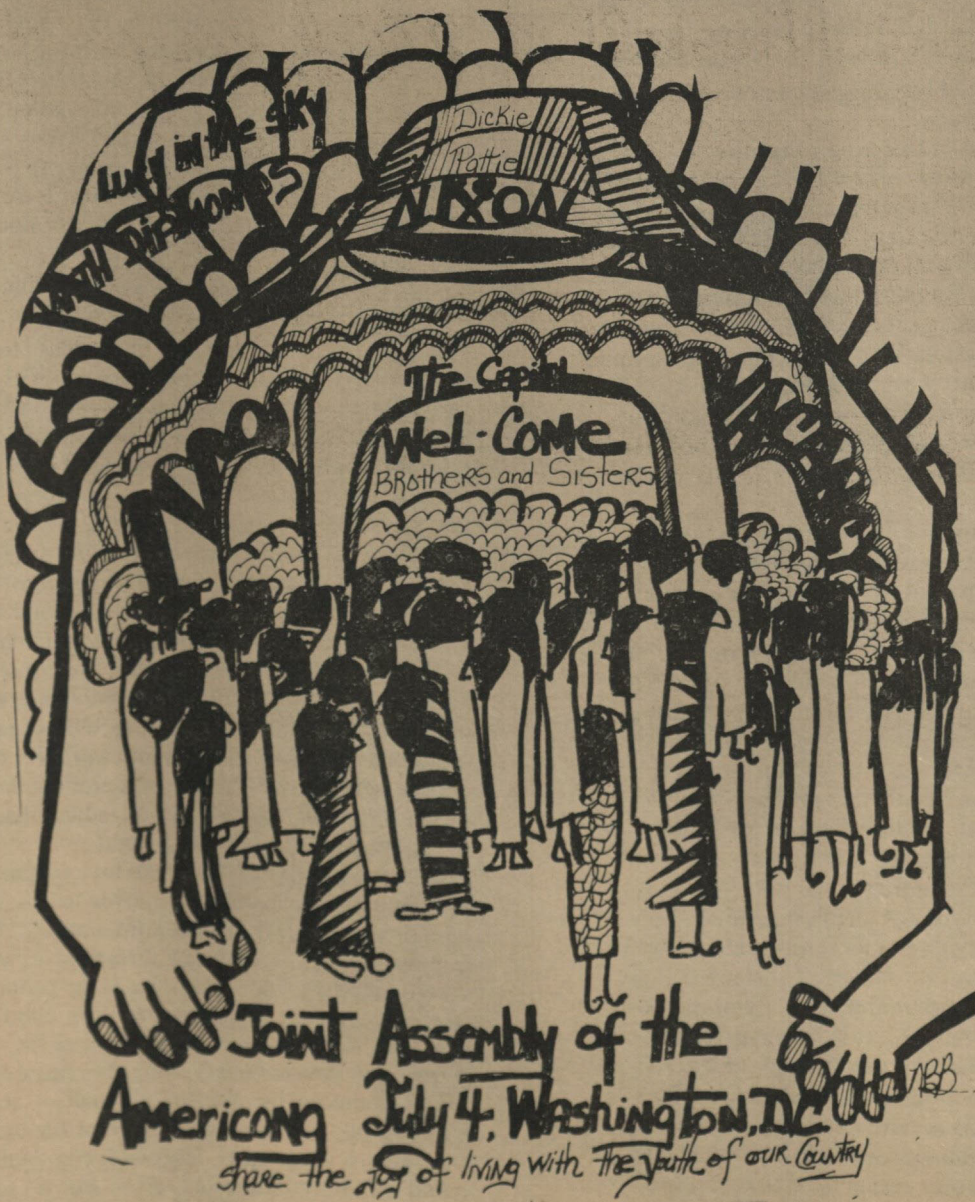 Lucy in the SKY
WITH DIAMONDS
Dickie
Pattie
NIXON
The Capitol
WeL·Come
BRothers and Sisters
Joint Assembly of the
Americong July 4, Washington, D.C.
Share the Joy of living with the Youth of our Country